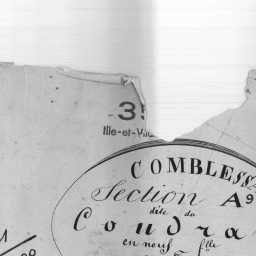 3
Ille-et-Vil
COMBLESSA
Section A9
dite du
Coudra
en neuf flle